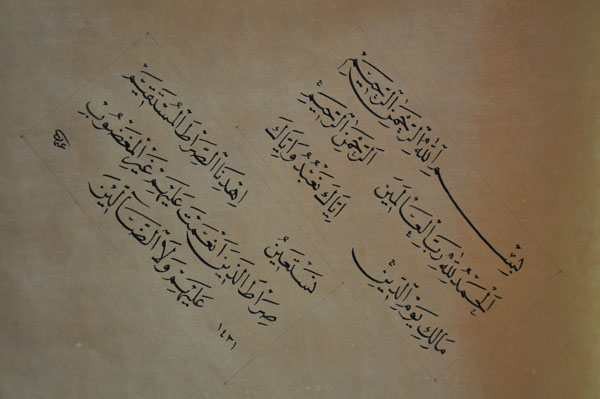 بِسْمِ اللهِ الرَّحْمٰنِ الرَّحِيْمِ
اَلْحَمْدُ لِلّٰهِ رَبِّ الْعَالَمِيْنَ اَلرَّحْمٰنِ الرَّحِيْمِ
مَالِكِ يَوْمِ الدِّيْنِ اِيَّاكَ نَعْبُدُ وَاِيَّاكَ
نَسْتَعِيْنُ اِهْدِنَا الصِّرَاطَ الْمُسْتَقِيْمَ
صِرَاطَ الَّذِيْنَ اَنْعَمْتَ عَلَيْهِمْ غَيْرِ الْمَغْضُوْبِ
عَلَيْهِمْ وَلَا الضَّآلِّيْنَ
١٤٣١